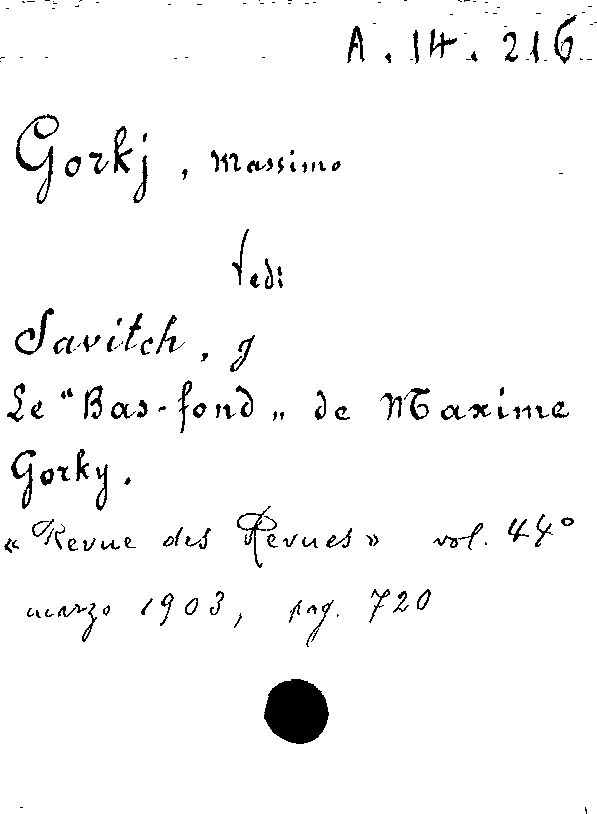 A. 14. 216
Gorkj, Massimo
Vedi
Savitch, g
Le "Bas-fond" de Maxime
Gorky.
« Revue des Revues » vol. 44°
marzo 1903, pag. 720